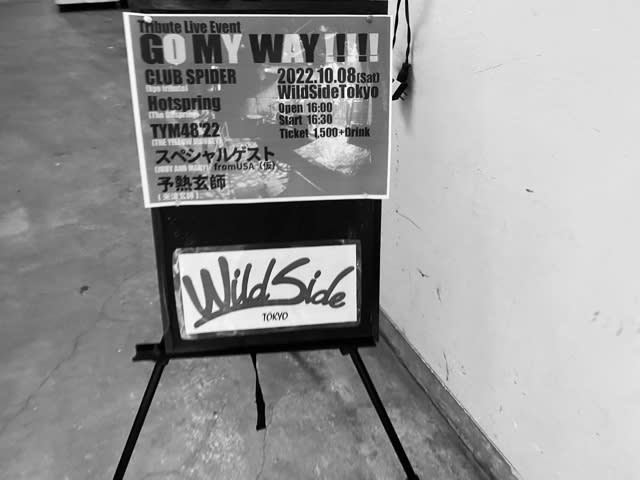 Tribute Live Event
GO MY WAY !!!!
CLUB SPIDER
2022.10.08(Sat)
WildSideTokyo
Hotspring
(The Offspring)
Open 16:00
Start 16:30
Ticket 1,500+Drink
TYM48'22
(THE YELLOW MONKEY)
スペシャルゲスト
(JUDY AND MARY) fromUSA (仮)
予熱玄師
(米津玄師)
WildSide
TOKYO